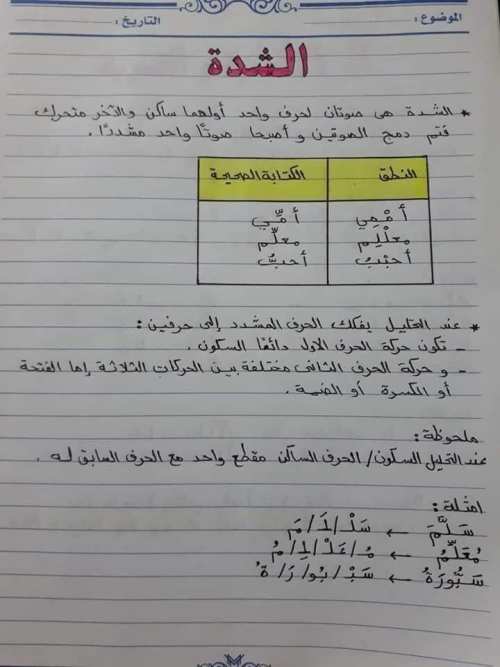 الموضوع : التاريخ :
الشدة
* الشدة هى صوتان لحرف واحد أولهما ساكن والآخر متحرك
فتم دمج الصوتين وأصبحا صوتًا واحد مشددًا .
النطق الكتابة الصحيحة
أمْمِي أمِّي
معلْلِم معلِّم
أحبْبُ أحبُّ
* عند التحليل يفكك الحرف المشدد إلى حرفين :
- تكون حركة الحرف الاول دائمًا السكون .
- و حركة الحرف الثانى مختلفة بين الحركات الثلاثة إما الفتحة
أو الكسرة أو الضمة .
ملحوظة :
عند التحليل السكون / الحرف الساكن مقطع واحد مع الحرف السابق له .
امثلة :
سَلَّمَ ← سَلْ / لَا / مَ
مُعَلِّمُ ← مُ / عَلْ / لِ / مُ
سَبُّورَةُ ← سَبْ / بُو / رَ / ةُ